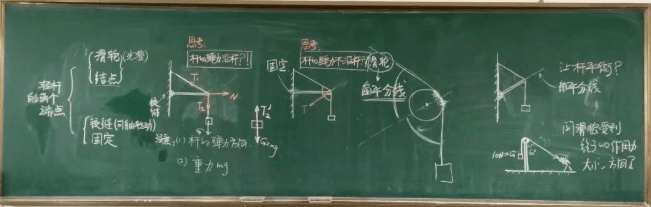 轻杆
的两个
端点
滑轮(光滑)
结点
铰链(可自由转动)
固定
思考:
杆的弹力沿杆?!
铰链
T₁
N
T₂
G
T₂'
G=mg
注意:(1)杆的弹力方向
(2)重力mg
固定
思考:
杆的弹力不沿杆?
滑轮
T
角平分线
让杆平衡?
角平分线
问滑轮受到
绳子的作用力
大小、方向?